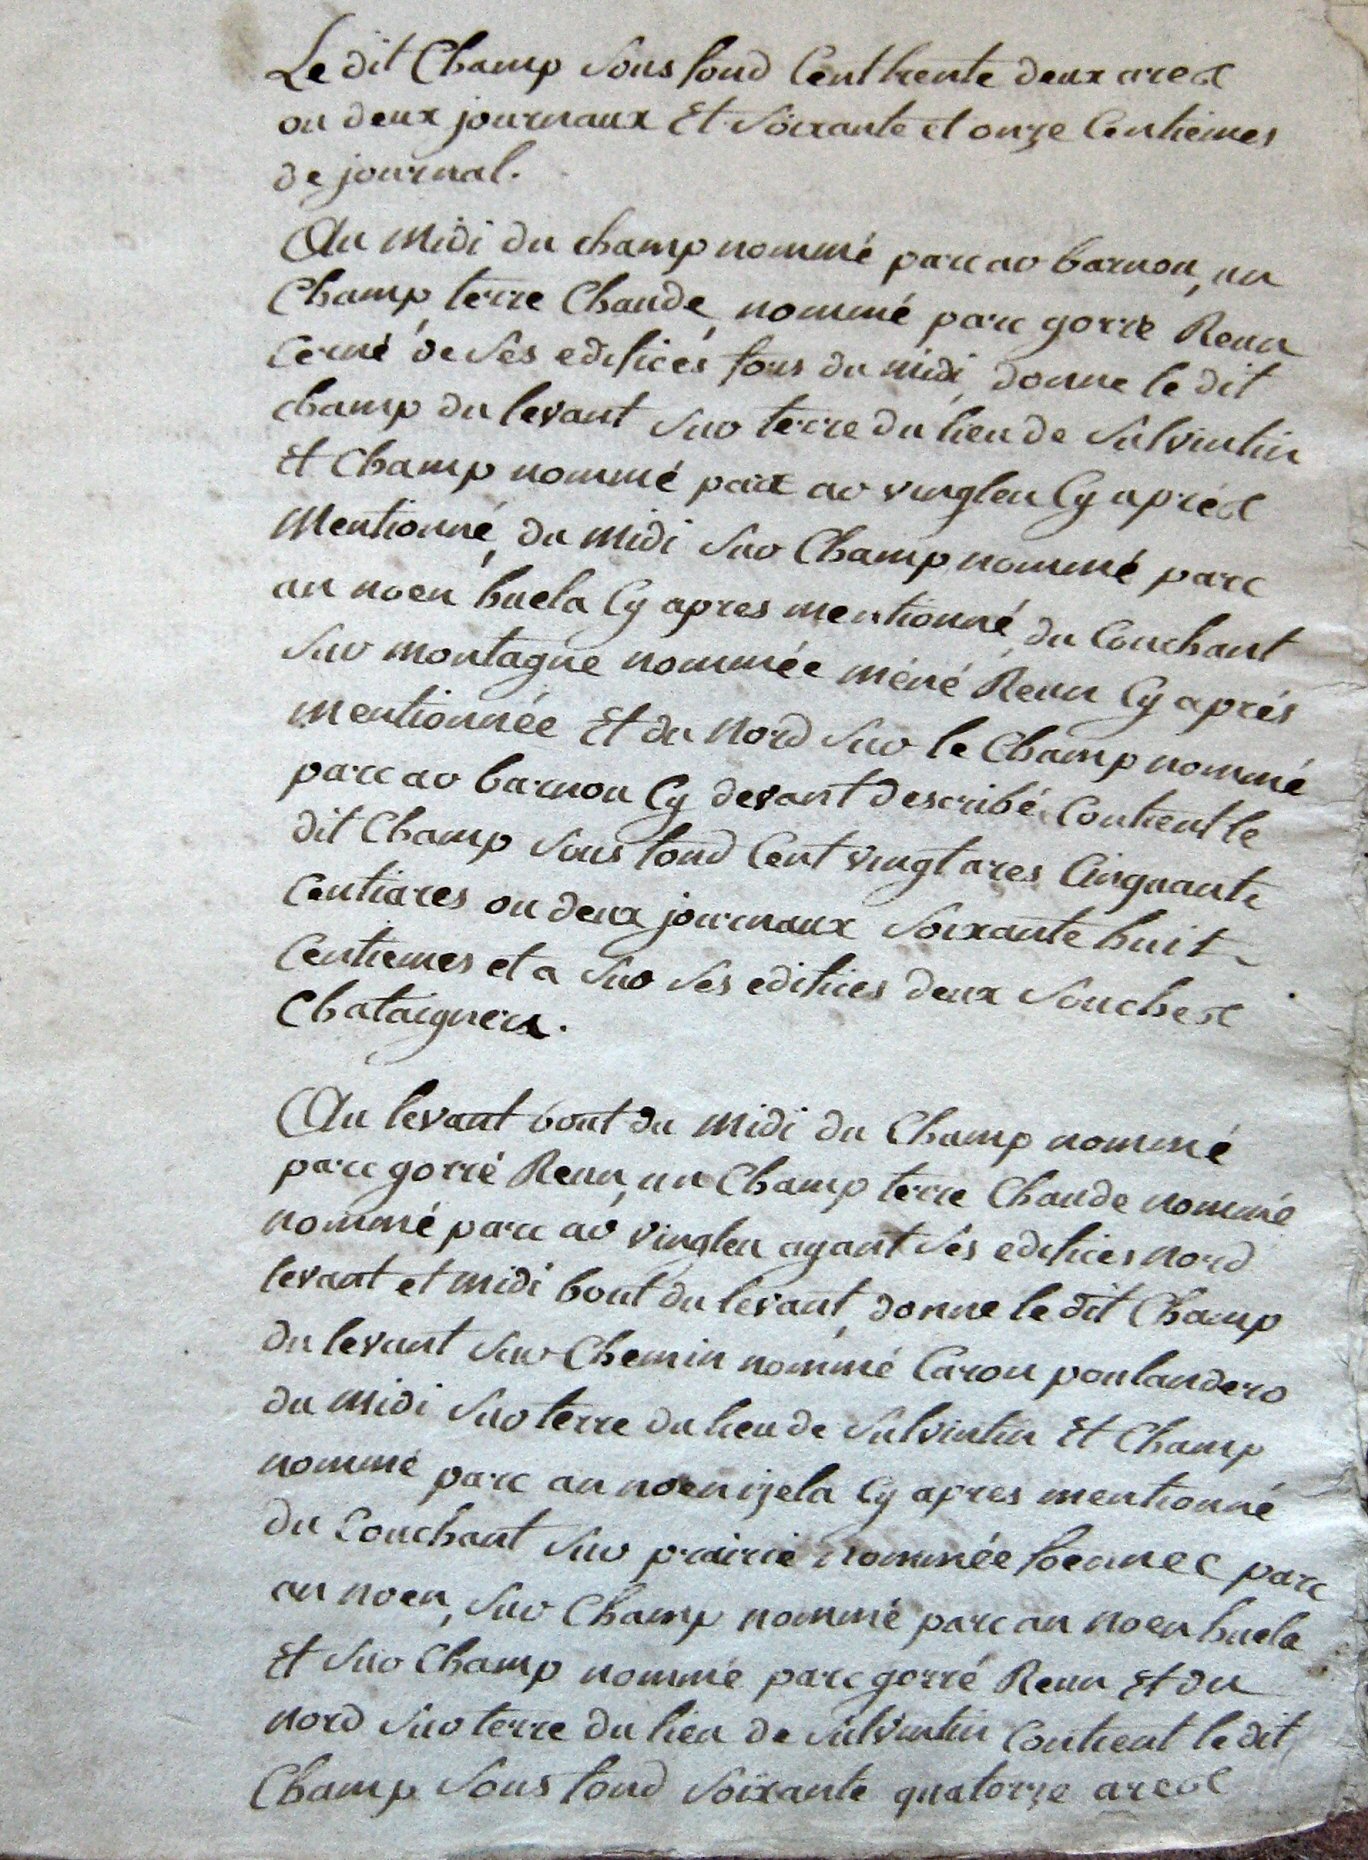 Le dit Champ sous fond Cent trente deux ares
ou deux journaux Et Soixante et onze Centiemes
de journal.
Au Midi du champ nommé parc ar barnou, un
Champ terre Chaude, nommé parc gorré Reun
Cerné de ses edifices fors du midi, donne le dit
champ du levant sur terre du lieu de Sulvintin
Et Champ nommé parc ar vingleu Cy aprés
Mentionné, du Midi sur Champ nommé parc
an noen huela Cy apres mentionné, du Couchant
sur montagne nommée méné Reun Cy aprés
mentionnée Et du Nord sur le Champ nommé
parc ar barnou Cy devant describé. Contient le
dit Champ sous fond Cent vingt ares Cinquante
Centiares ou deux journaux soixante huit
Centiemes et a sur ses edifices deux souches
Chataigners.
Au levant bout du Midi du Champ nommé
parc gorré Reun, un Champ terre Chaude nommé
nommé parc ar vinglen ayant ses edifices nord
levant et midi bout du levant, donne le dit Champ
du levant sur Chemin nommé Carou poulandero
du Midi sur terre du lieu de Sulvintin Et Champ
nommé parc an noen izela Cy apres mentionné
du Couchant sur prairie nommée foennec parc
an noen, sur Champ nommé parc an noen huela
Et sur Champ nommé parc gorré Reun Et du
Nord sur terre du lieu de Sulvintin Contient le dit
Champ sous fond soixante quatorze ares